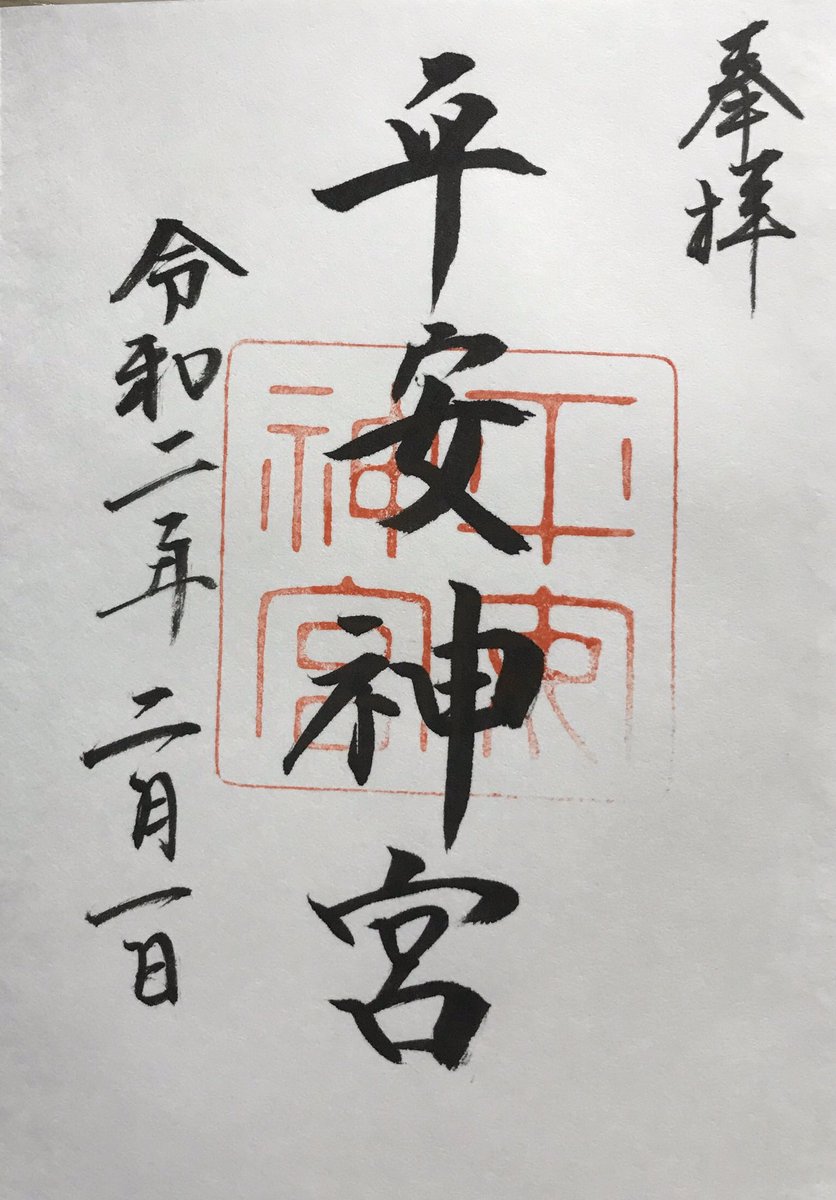 奉拝
平安神宮
令和二年二月一日
平安
神宮